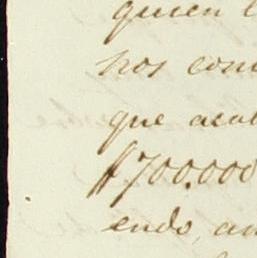 quien l
nos com
que acab
$700.000
endo, an